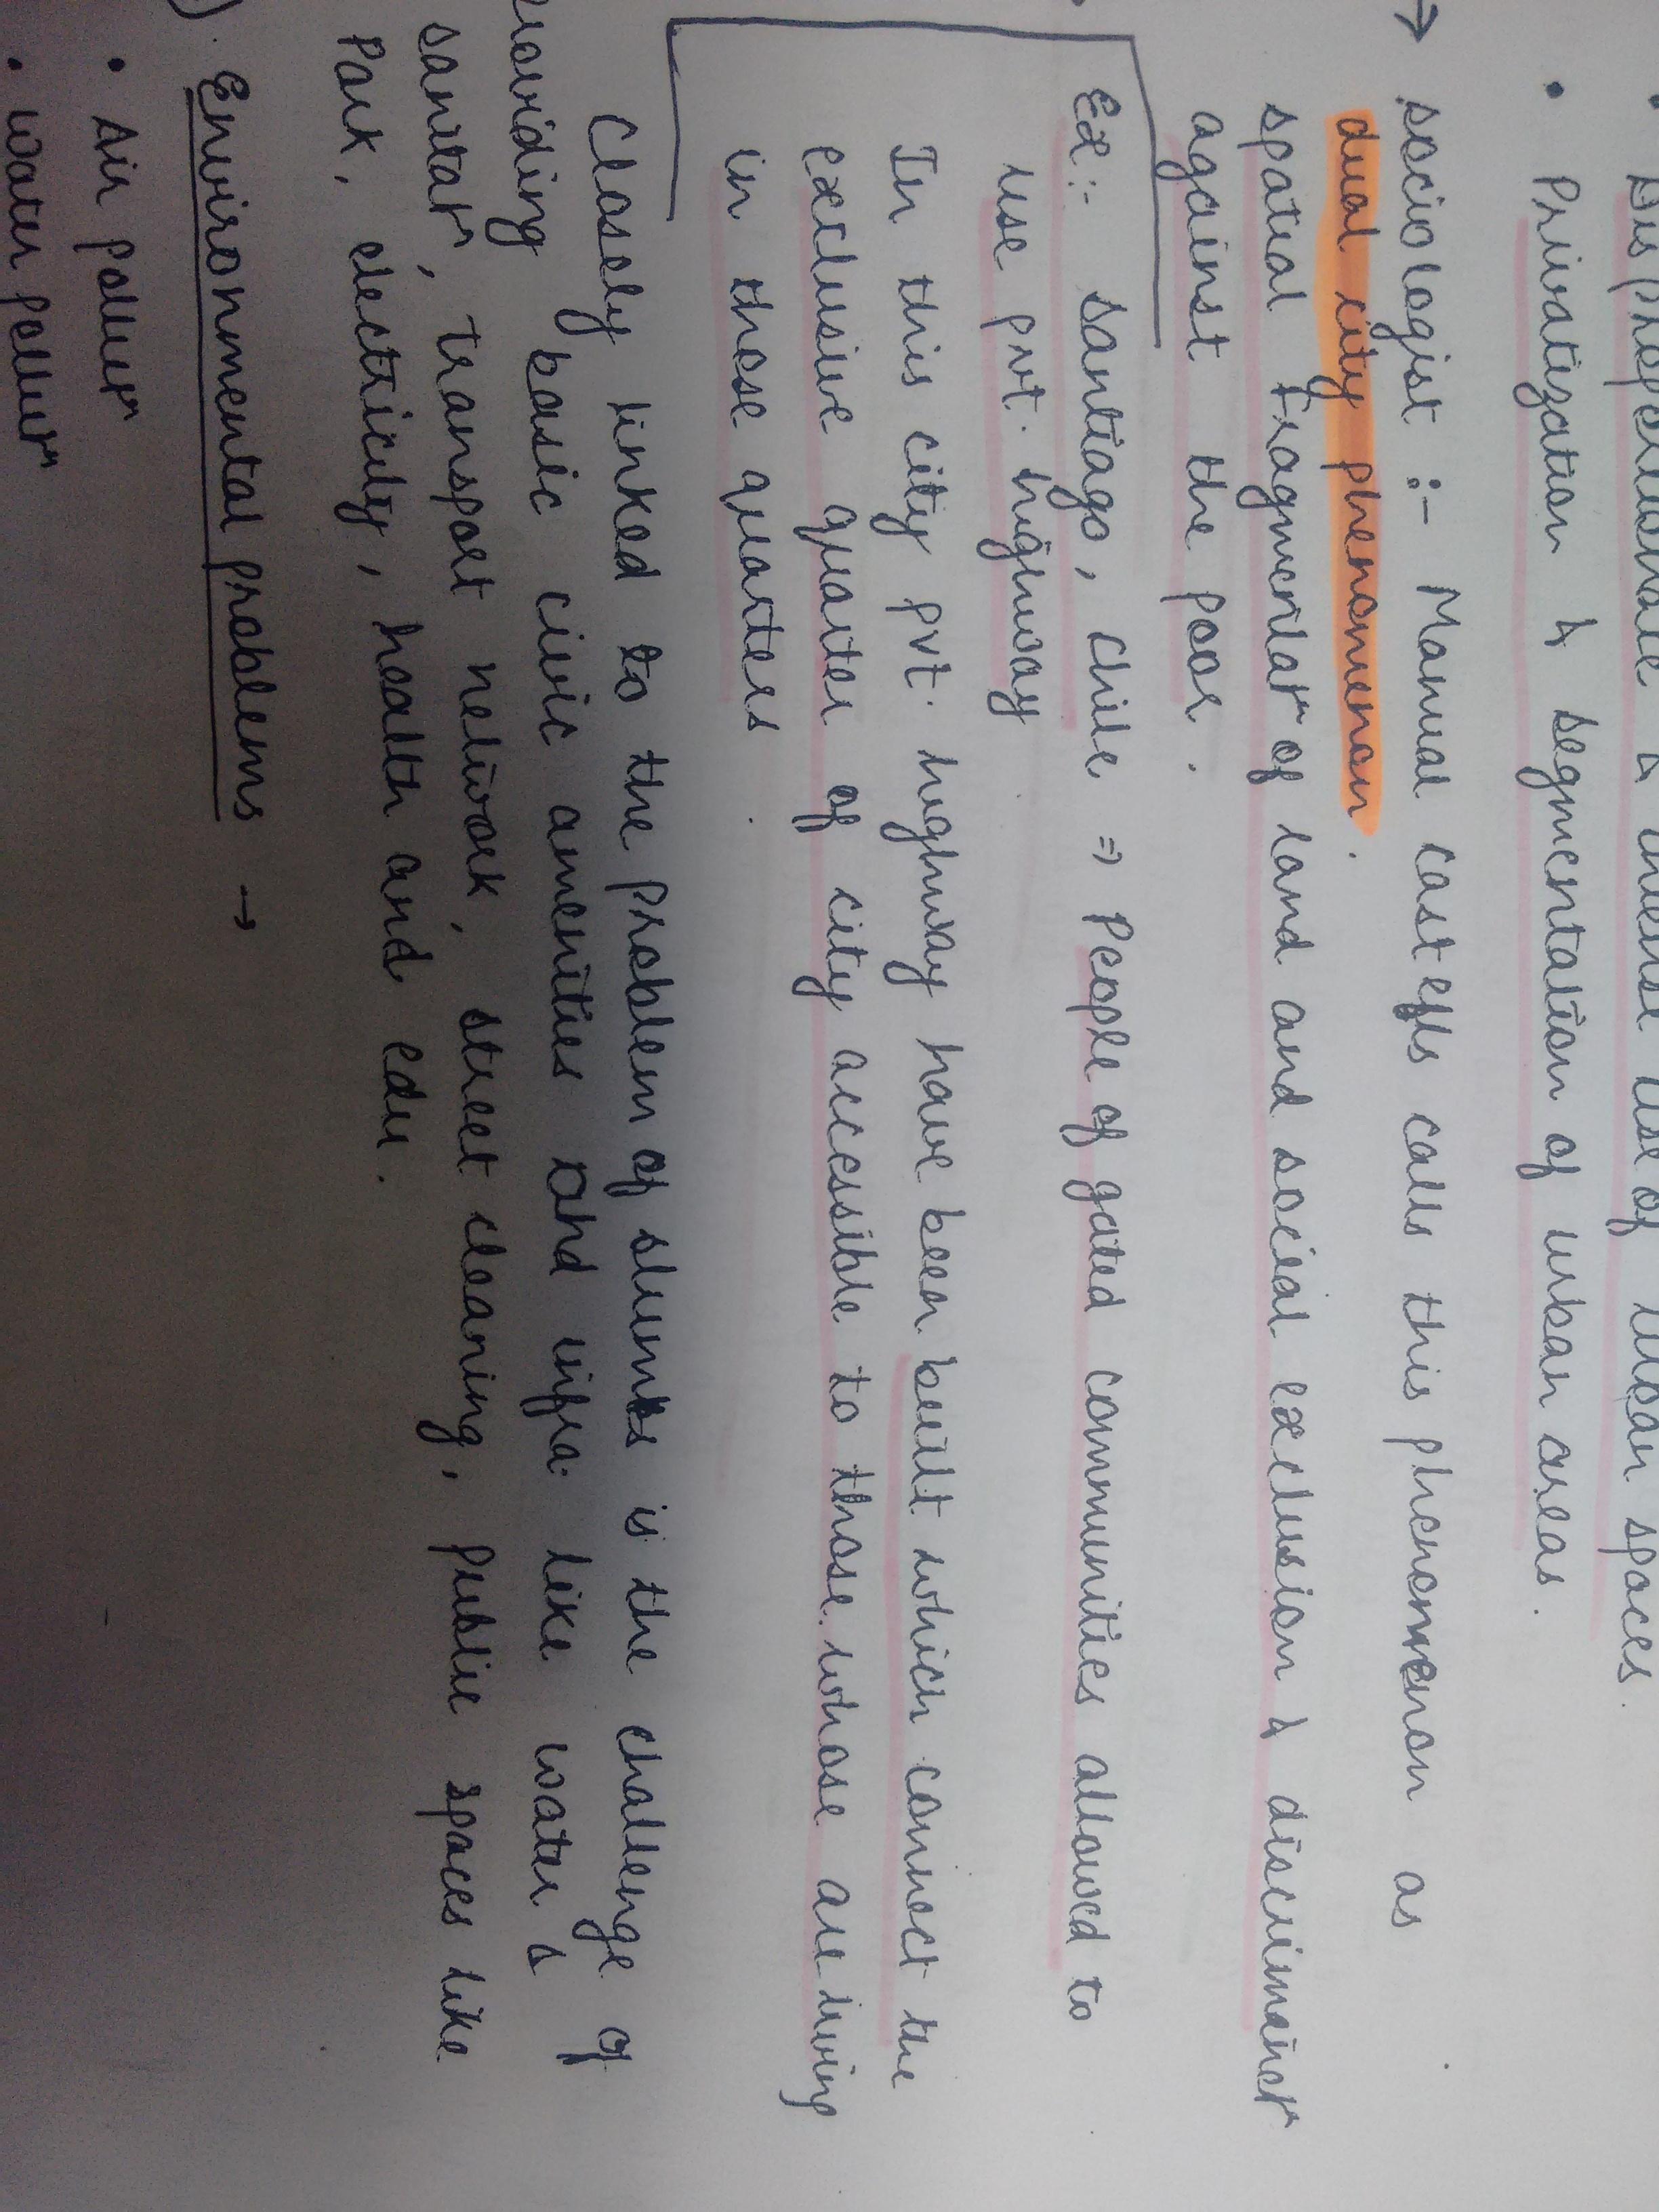 Disproportionate & inense use of urban spaces.
• Privatization & segmentation of urban areas.
→ sociologist :- Manual castells calls this phenomenon as
dual city phenomenon.
spatial Fragmentatⁿ of land and social exclusion & discriminatⁿ
against the poor.
Ex:- santiago, chile ⇒ People of gated communities allowed to
use pvt. highway
In this city pvt. highway have been built which connect the
exclusive quater of city accessible to those whose are living
in these quarters.
Closely linked to the problem of slums is the challenge of
roviding basic civic amenities and infra. like water &
sanitatⁿ, transport network, street cleaning, public spaces like
Park, electricity, health and edu.
). Environmental problems →
• Air pollutⁿ
• water pollutⁿ